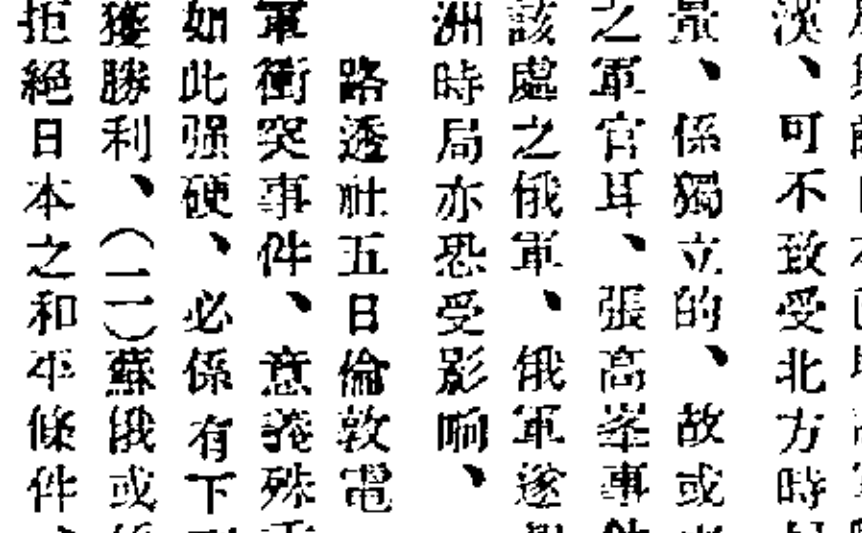 淡、可不致受北方時
景、係獨立的、故或
之軍官耳、張高峯事
該處之俄軍、俄軍遂
洲時局亦恐受影响、
路透社五日倫敦電
軍衝突事件、意義殊
如此强硬、必係有下
獲勝利、(二)蘇俄或
拒絕日本之和平條件、